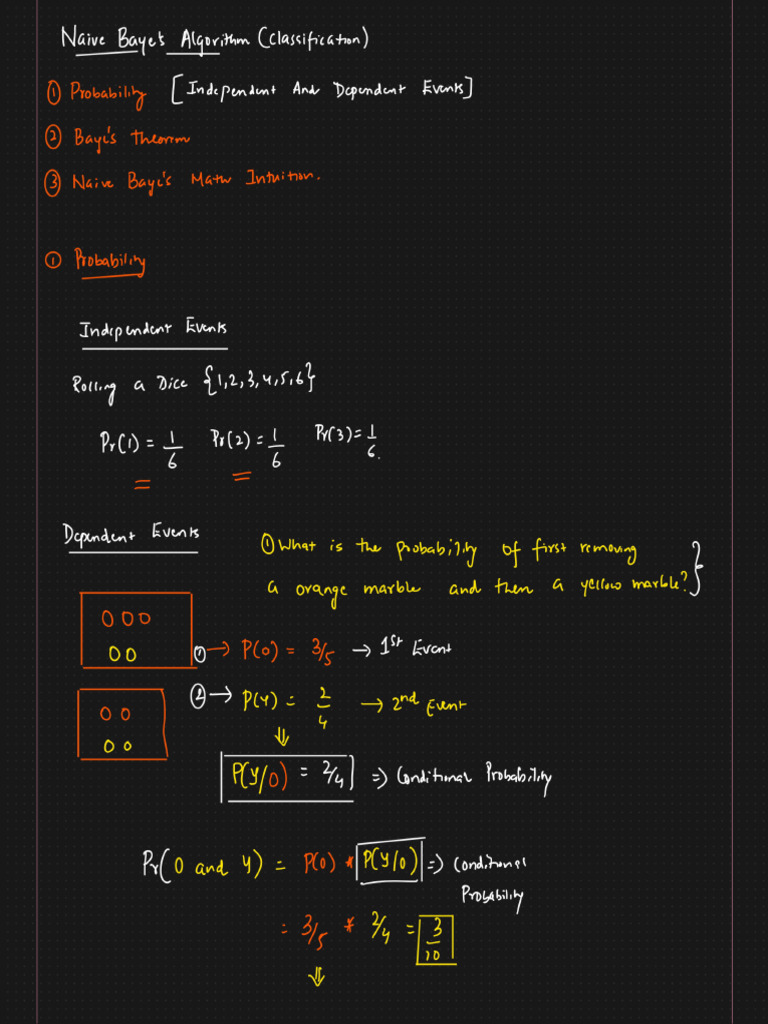 Naive Baye's Algorithm (Classification)
① Probability [Independent And Dependent Events]
② Bayi's Theorem
③ Naive Bayi's Math Intuition.
① Probability
Independent Events
Rolling a Dice {1,2,3,4,5,6}
Pr(1) = 1/6 Pr(2) = 1/6 Pr(3) = 1/6.
Dependent Events
① What is the probability of first removing
a orange marble and then a yellow marble? }
① → P(O) = 3/5 → 1st Event
② → P(Y) = 2/4 → 2nd Event
⇓
P(Y/O) = 2/4 ⇒ Conditional Probability
Pr(O and Y) = P(O) * P(Y/O) ⇒ Conditional
Probability
= 3/5 * 2/4 = 3/10
⇓